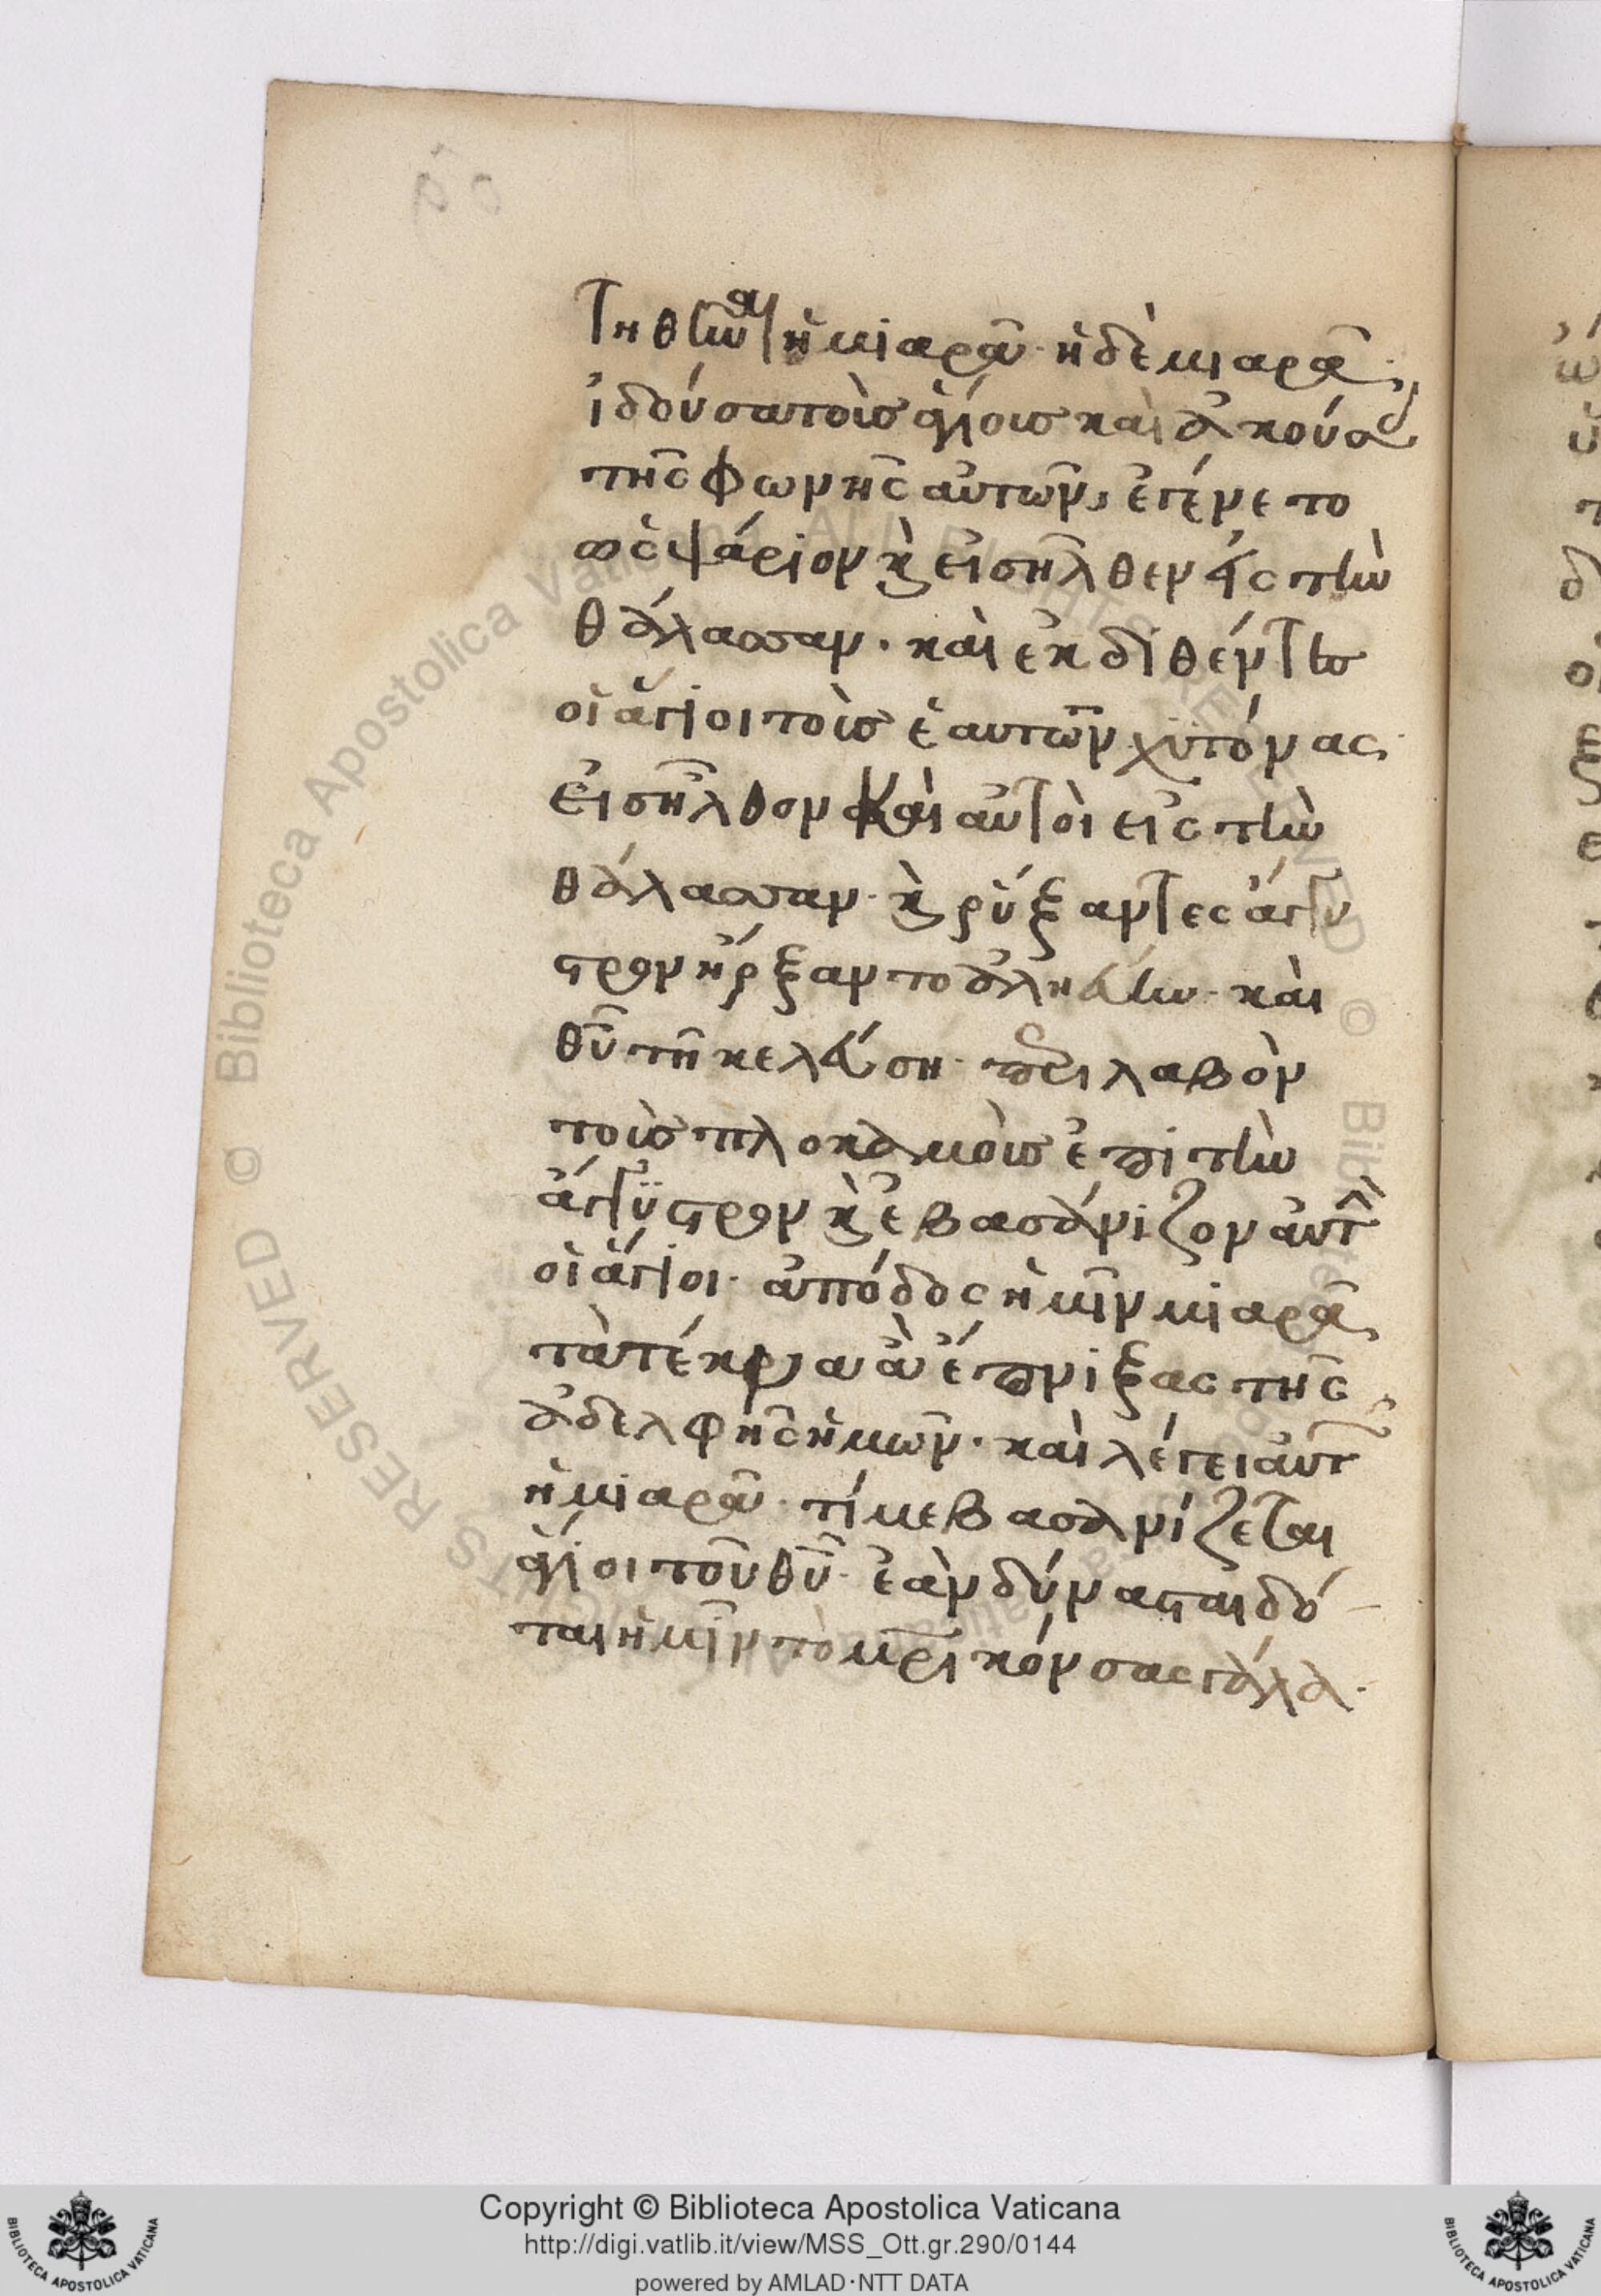 τηθῆναι ἡ μιαρά· ἡ δὲ μιαρὰ
ἰδοῦσα τοὺς ἁγίους καὶ ἀκούσα
τῆς φωνῆς αὐτῶν, ἐγένετο
ὡς ὀψάριον κ εἰσῆλθεν εἰς τὴν
θάλασσαν· καὶ ἐκδιθέντες
οἱ ἅγιοι τοὺς ἑαυτῶν χυτόνας
εἰσῆλθον καὶ αὐτοὶ εἰς τὴν
θάλασσαν· κ ρύξαντες ἄγγυ
στρον ἤρξαντο ἁλιεύειν· καὶ
θυ τῆ κελεύση·
τοὺς πλοκάμους ἐπὶ τὴν
ἄγγυστρον κ ἐβασάνιζον αυτ
οἱ ἅγιοι· ἀπόδος ἡμῖν μιαρὰ
τὰ τέκνα ἃ ἔπνιξας τῆς
ἀδελφῆς ἡμῶν· καὶ λέγει αὐτ
ἡ μιαρά· τί με βασανίζεται
ἅγιοι τοῦ θυ· ἐὰν δύνασται δό
ται ἡμῖν τὸ μητρικόν σας γάλα·
Copyright © Biblioteca Apostolica Vaticana
http://digi.vatlib.it/view/MSS_Ott.gr.290/0144
powered by AMLAD·NTT DATA